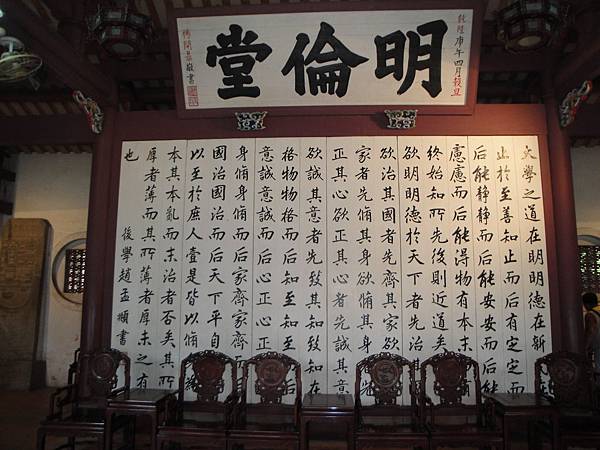 明倫堂
乾隆庚午四月穀旦
敬書
大學之道在明明德在新
止於至善知止而后有定定而
后能靜靜而后能安安而后能
慮慮而后能得物有本末
終始知所先後則近道矣
欲明明德於天下者先治其
欲治其國者先齊其家欲
家者先脩其身欲脩其身者先
正其心欲正其心者先誠其意
欲誠其意者先致其知致知在
格物物格而后知至知至而后
意誠意誠而后心正心正
身脩身脩而后家齊家齊而后
國治國治而后天下平自
以至於庶人壹是皆以脩
本其本亂而末治者否矣其所
厚者薄而其所薄者厚未之有
也
後學趙孟頫書